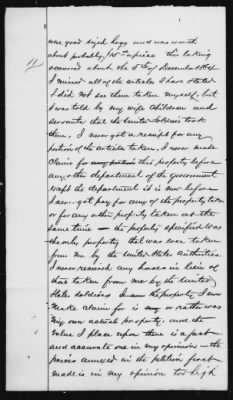 were good sized hogs and were worth
about probably $15 apiece this taking
occurred about the 5th of December 1864
I missed all of the articles I have stated
I did not see them taken myself, but
I was told by my wife children and
servants that the United States soldiers took
them. I never got a receipt for any
portion of the articles taken. I never made
claim for this property before
any other department of the government
except the department it is now before
I never got pay for any of the property taken
or for any other property taken at the
same time — the property specified was
the only property that was ever taken
from me by the United States Authorities.
I never received any horses in lieu of
that taken from me by the United
States soldiers. the property I now
make claim for is my or rather was
my own actual property. and the
value I place upon them is a just
and accurate one in my opinion — the
prices annexed in the petition first
made is in my opinion too high